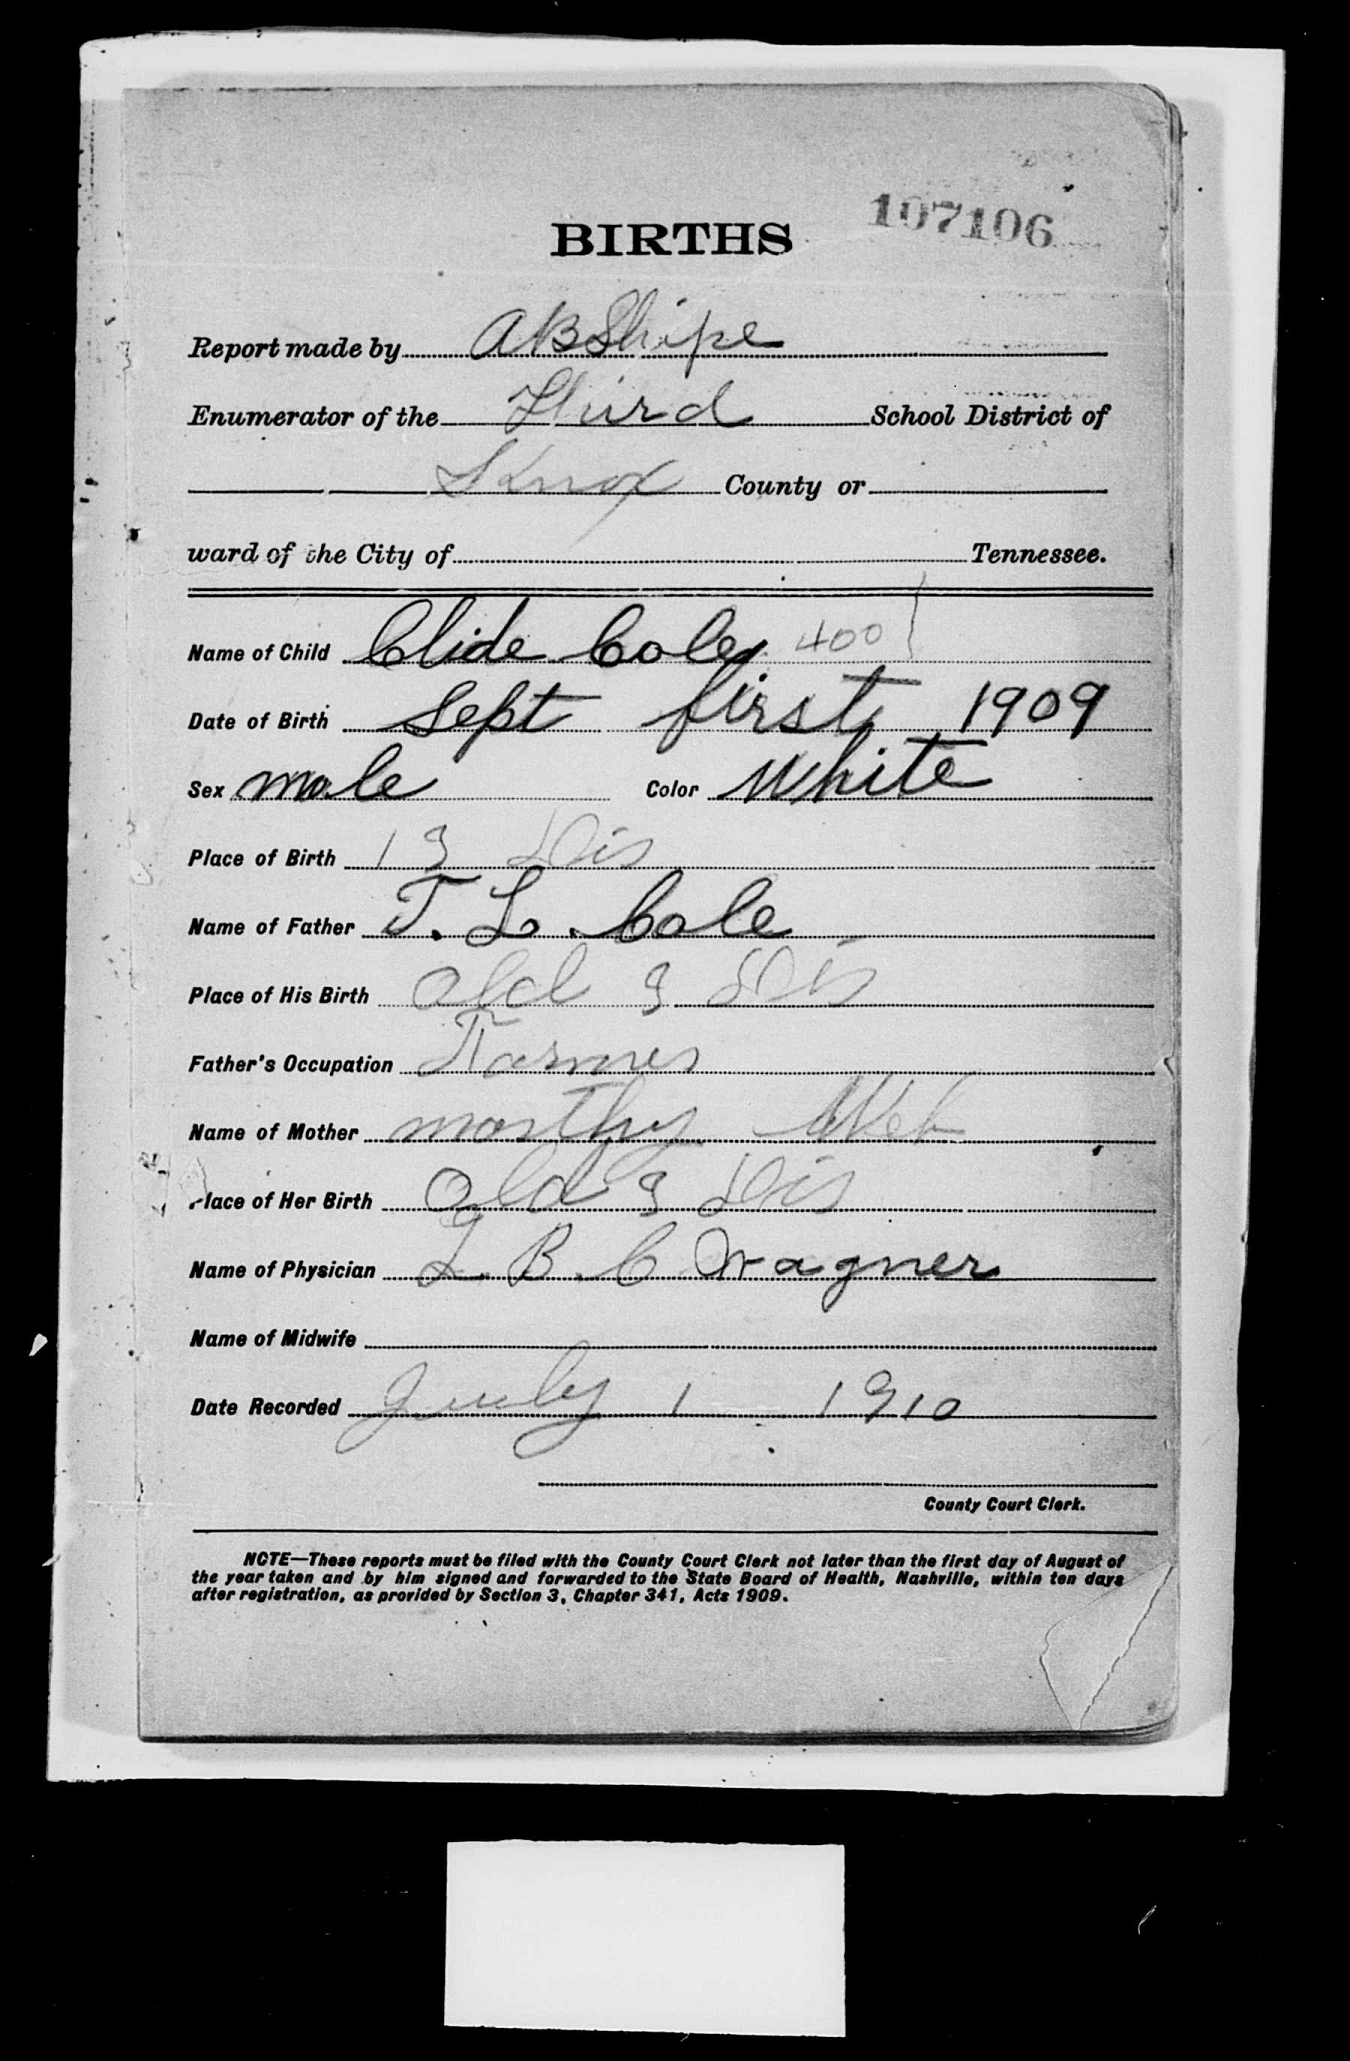 107106
BIRTHS
Report made by A B Shipe
Enumerator of the Third School District of
Knox County or
ward of the City of Tennessee.
Name of Child Clide Cole 400
Date of Birth Sept first 1909
Sex male Color White
Place of Birth 13 Dis
Name of Father T. L. Cole
Place of His Birth Old 3 Dis
Father's Occupation Farmer
Name of Mother
Place of Her Birth Old 3 Dis
Name of Physician L. B. C Wagner
Name of Midwife
Date Recorded July 1 1910
County Court Clerk.
NOTE—These reports must be filed with the County Court Clerk not later than the first day of August of
the year taken and by him signed and forwarded to the State Board of Health, Nashville, within ten days
after registration, as provided by Section 3, Chapter 341, Acts 1909.